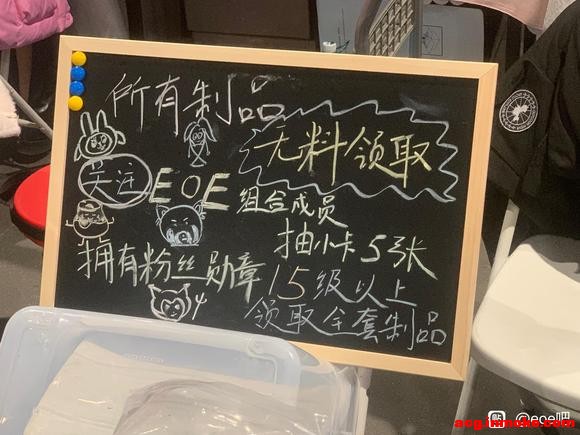 所有制品
无料领取
关注EOE组合成员
抽小卡5张
拥有粉丝勋章15级以上
领取全套制品
@eoe吧
acg.inmoke.com